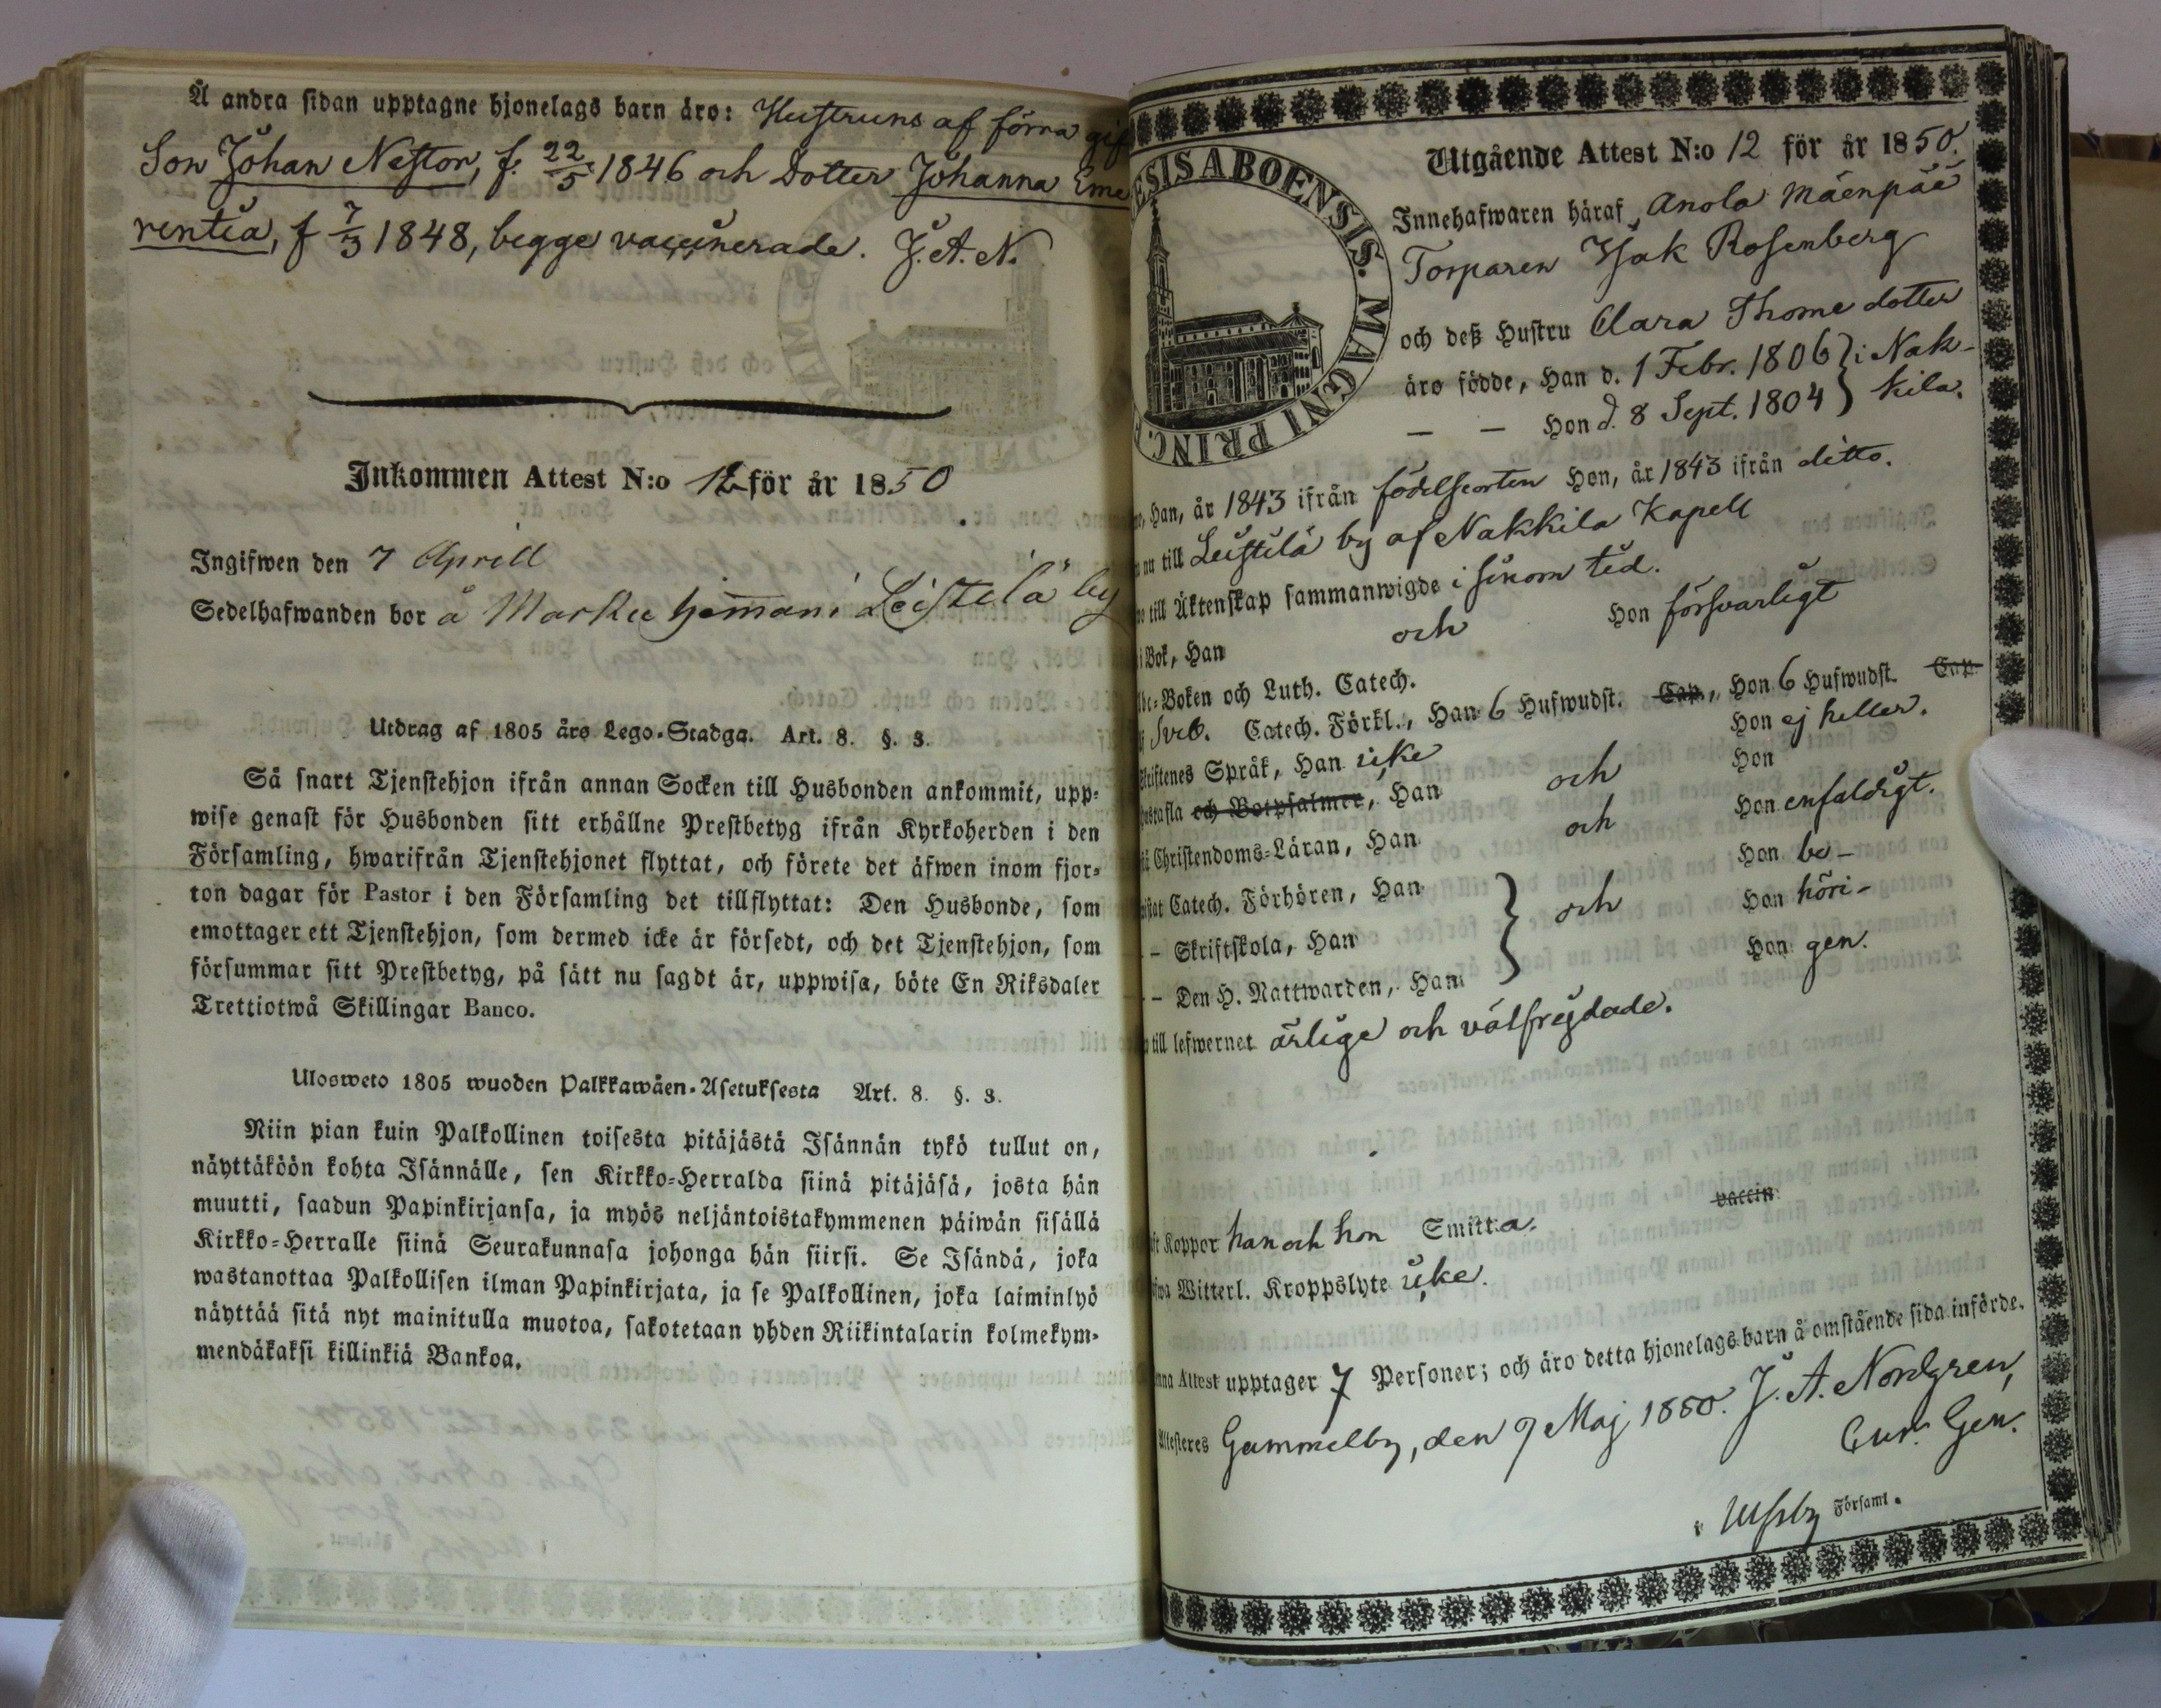 Å andra sidan upptagne hjonelags barn äro: Hustruns af förra gif
Son Johan Nestor, f. 22/5 1846 och Dotter Johanna Eme
rentia, f 7/3 1848, begge vaccinerade. J. A. N.
Inkommen Attest N:o 12 för år 1850
Ingifwen den 7 Aprill
Sedelhafwanden bor å Marku heman i Leistilä by
Utdrag af 1805 års Lego-Stadga. Art. 8. §. 3.
Så snart Tjenstehjon ifrån annan Socken till Husbonden ankommit, upp-
wise genast för Husbonden sitt erhållne Prestbetyg ifrån Kyrkoherden i den
Församling, hwarifrån Tjenstehjonet flyttat, och förete det äfwen inom fjor-
ton dagar för Pastor i den Församling det tillflyttat: Den Husbonde, som
emottager ett Tjenstehjon, som dermed icke är försedt, och det Tjenstehjon, som
försummar sitt Prestbetyg, på sätt nu sagdt är, uppwisa, böte En Riksdaler
Trettiotwå Skillingar Banco.
Ulosweto 1805 wuoden Palkkawäen-Asetuksesta Art. 8. §. 3.
Niin pian kuin Palkollinen toisesta pitäjästä Isännän tykö tullut on,
näyttäköön kohta Isännälle, sen Kirkko-Herralda siinä pitäjäsä, josta hän
muutti, saadun Papinkirjansa, ja myös neljäntoistakymmenen päiwän sisällä
Kirkko-Herralle siinä Seurakunnasa johonga hän siirsi. Se Isändä, joka
wastanottaa Palkollisen ilman Papinkirjata, ja se Palkollinen, joka laiminlyö
näyttää sitä nyt mainitulla muotoa, sakotetaan yhden Riikintalarin kolmekym-
mendäkaksi killinkiä Bankoa.
ESIS ABOENSIS. MAGNI PRINC.
Utgående Attest N:o 12 för år 1850.
Innehafwaren häraf, Anola Mäenpää
Torparen Isak Rosenberg
och deß Hustru Clara Thome dotter
äro födde, Han d. 1 Febr. 1806 } i Nak-
— — Hon d. 8 Sept. 1804 } kila.
Han, år 1843 ifrån födelseorten Hon, år 1843 ifrån ditto.
nu till Leistilä by af Nakkila Kapell
till Äktenskap sammanwigde i sinom tid.
i Bok, Han och Hon försvarligt
Abc-Boken och Luth. Catech.
Sveb. Catech. Förkl., Han 6 Hufwudst. Cap., Hon 6 Hufwudst. Cap.
Skriftenes Språk, Han icke Hon ej heller.
Hustafla och Botpsalmer, Han och Hon
Christendoms-Läran, Han och Hon enfaldigt.
Catech. Förhören, Han } Hon be-
— Skriftskola, Han } och Hon höri-
— Den H. Nattwarden, Han } Hon gen.
till lefwernet ärlige och välfrejdade.
vaccin
Koppor han och hon Smitta.
Witterl. Kroppslyte icke.
Attest upptager 7 Personer; och äro detta hjonelags barn å omstående sida införde.
Attesteres Gammelby, den 9 Maj 1850. J. A. Nordgren,
Cur. Gen.
i Ulfsby Församl.